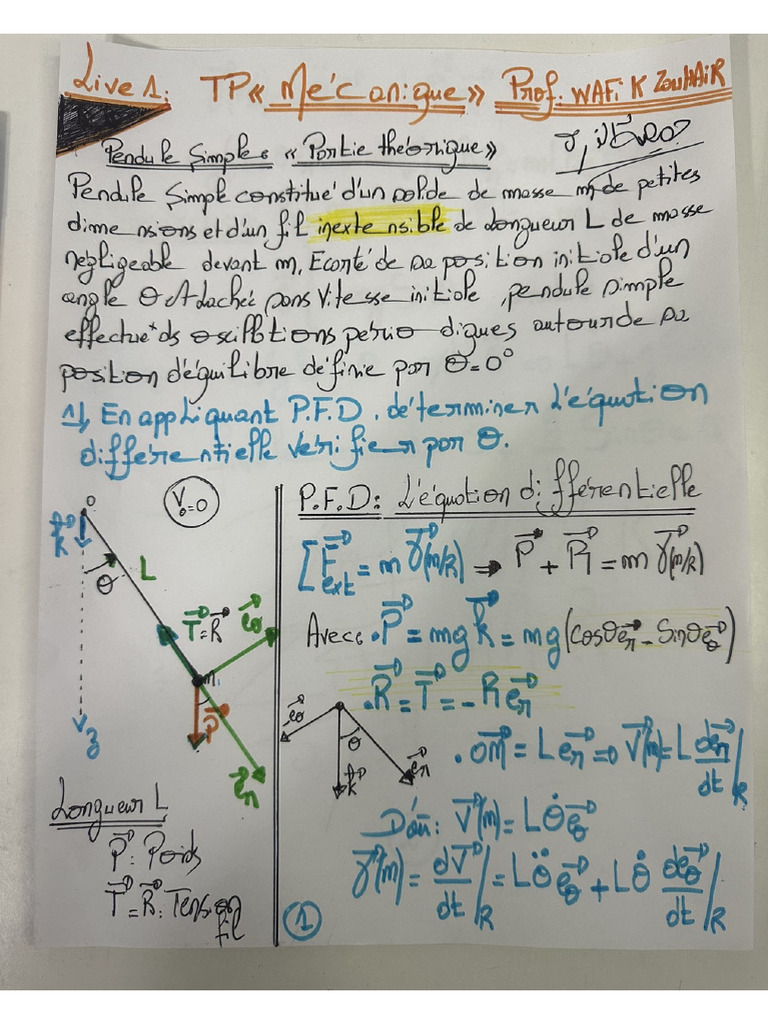 Live 1: TP « Mécanique » Prof. WAFiK ZouHAiR
Pendule Simple : « Partie théorique »
Pendule Simple constitué d'un solide de masse m de petites
dimensions et d'un fil inextensible de Longueur L de masse
négligeable devant m, Ecarté de sa position initiale d'un
angle θ et lachée sans vitesse initiale, pendule simple
effectue ds oscillations périodiques autour de sa
position d'équilibre définie par θ=0°
1) En appliquant P.F.D, déterminer L'équation
différentielle vérifier par θ.
V₀=0
O
k⃗
θ
L
T⃗=R⃗
e⃗θ
m
P⃗
e⃗r
z
Longueur L
P⃗: Poids
T⃗=R⃗: Tension
fil
P.F.D: L'équation différentielle
ΣF⃗ext = m γ⃗(m/R) ⇒ P⃗ + R⃗ = m γ⃗(m/R)
Avec: • P⃗ = mg k⃗ = mg (cosθ e⃗r - Sinθ e⃗θ)
• R⃗ = T⃗ = - R e⃗r
e⃗θ
θ
k⃗
e⃗r
• OM⃗ = L e⃗r ⇒ V⃗(m) = L de⃗r/dt /R
D'où: V⃗(m) = Lθ̇ e⃗θ
γ⃗(m) = dV⃗/dt /R = Lθ̈ e⃗θ + Lθ̇ de⃗θ/dt /R
1